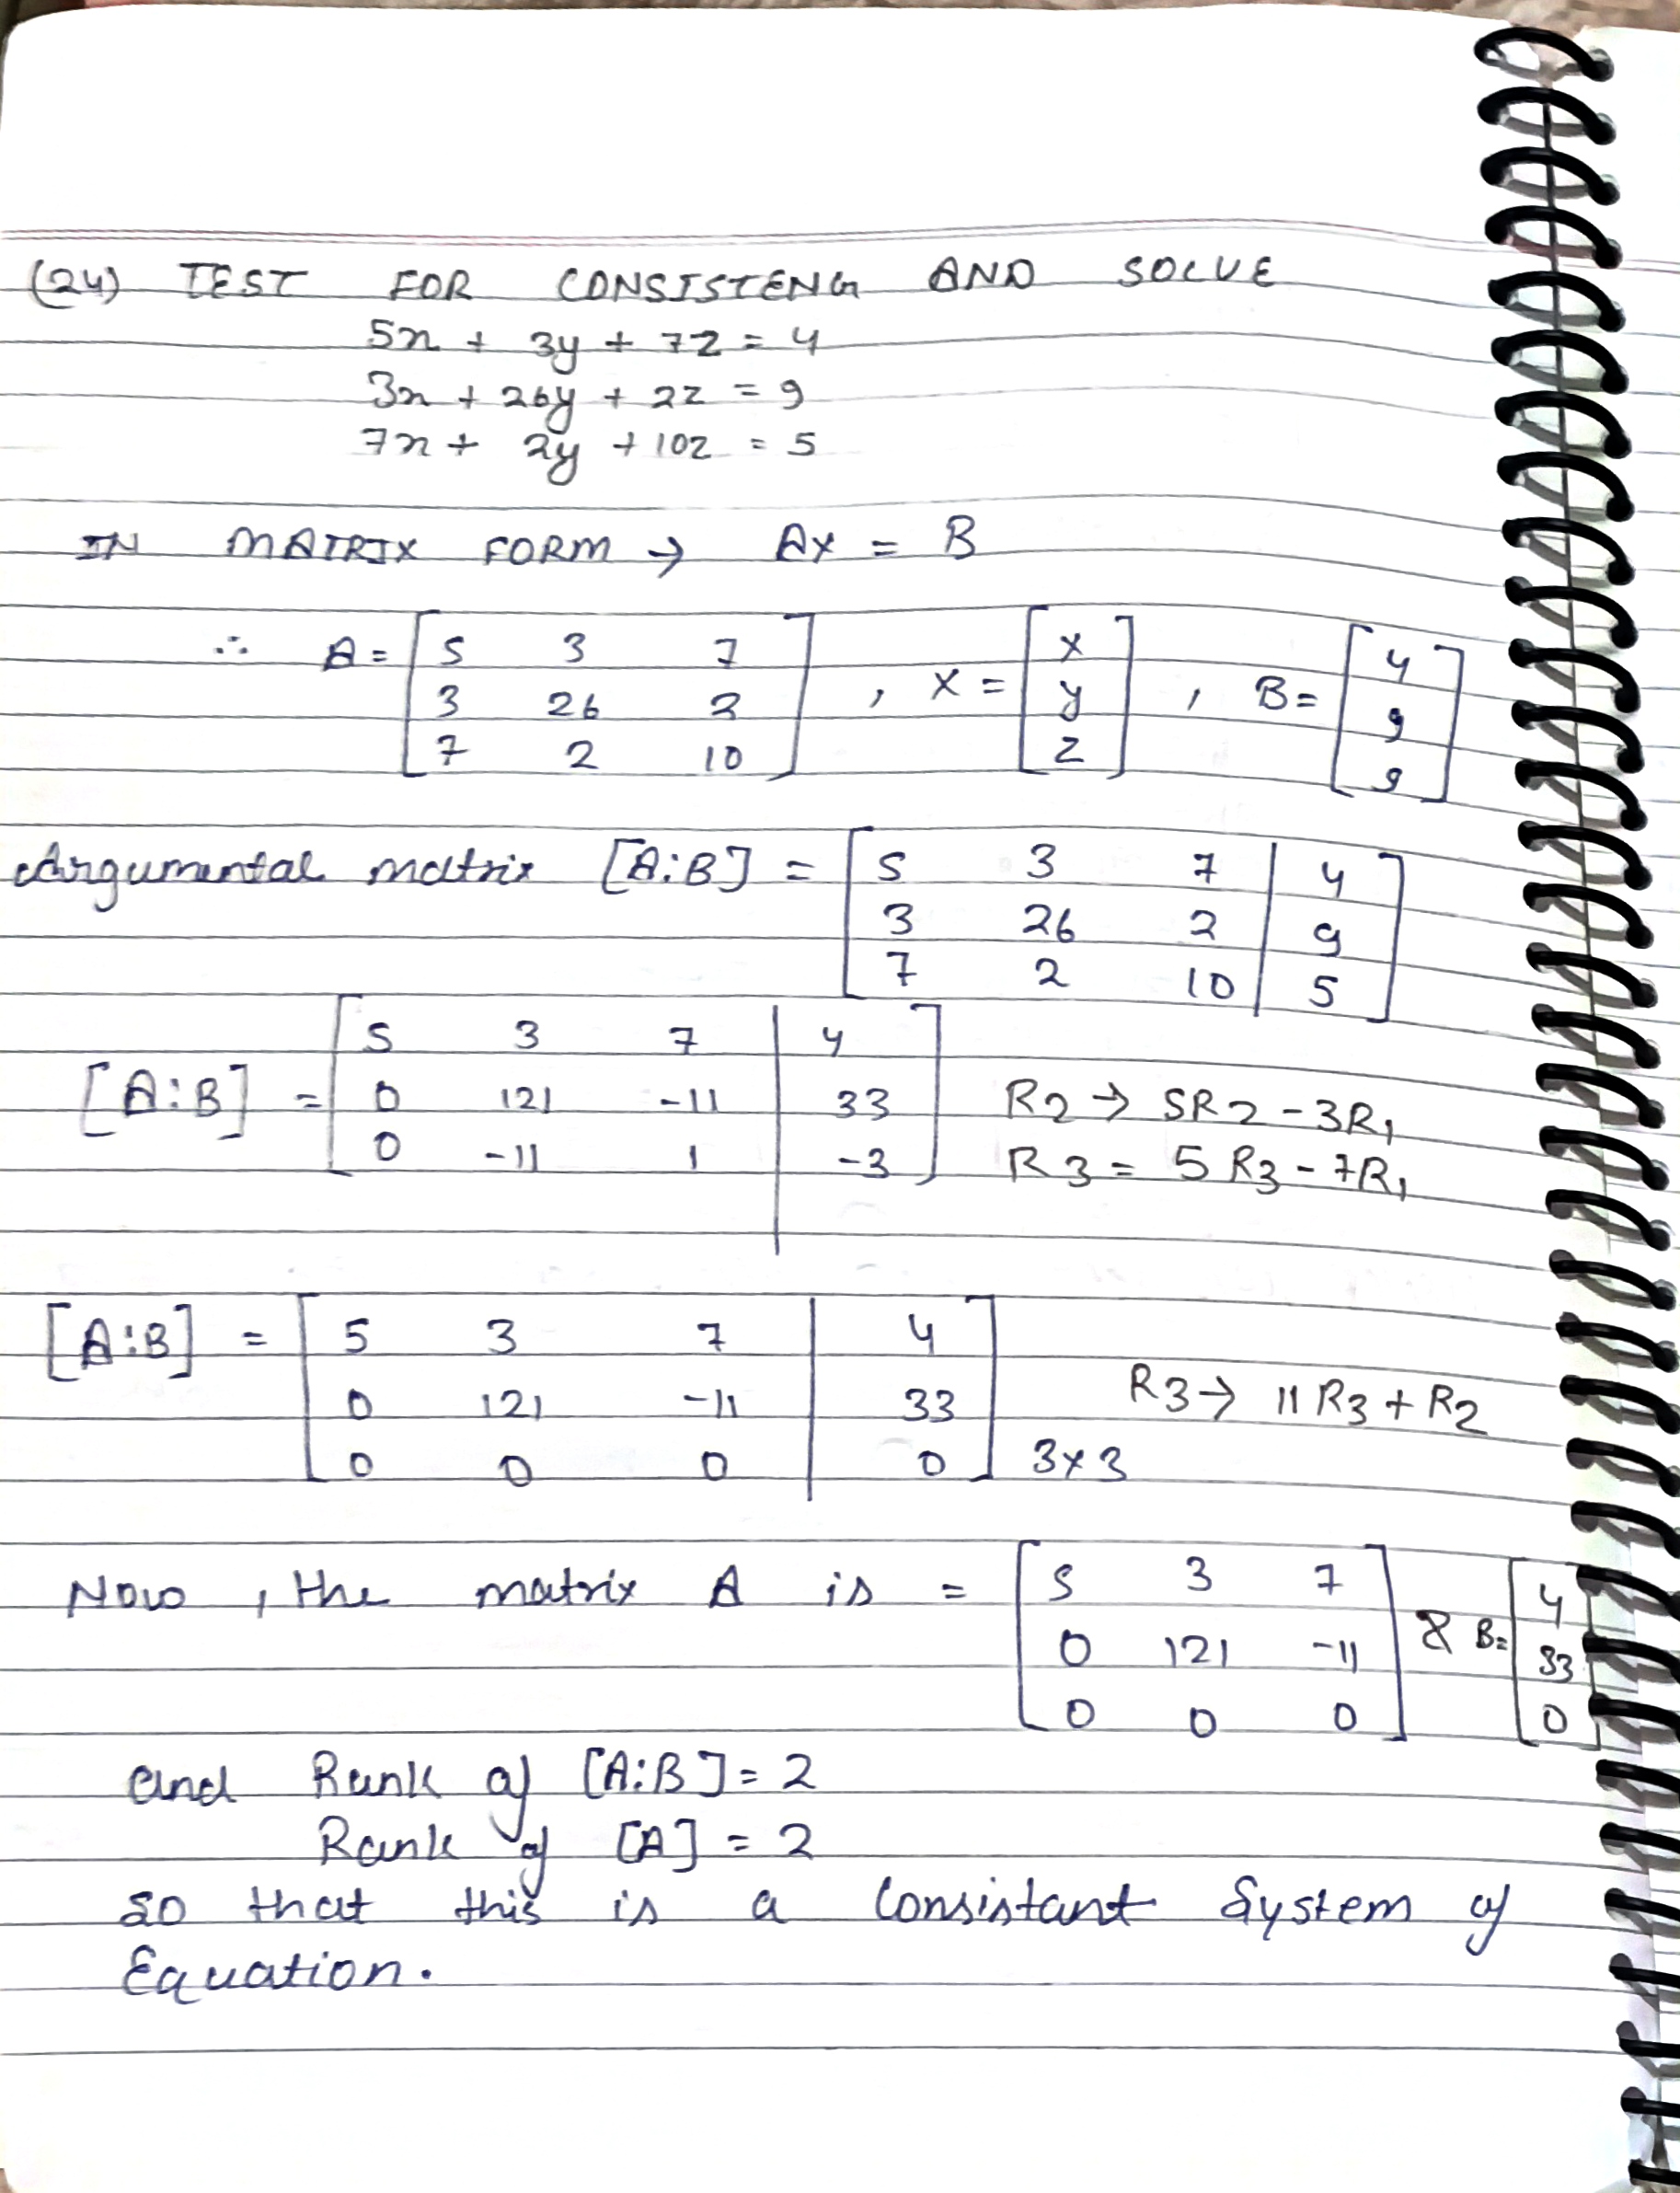 (24) TEST FOR CONSISTENG AND SOLVE
5x + 3y + 7z = 4
3x + 26y + 2z = 9
7x + 2y + 10z = 5
IN MATRIX FORM → AX = B
∴ A = [ 5 3 7 ] , X = [ x ] , B = [ 4 ]
3 26 2 y 9
7 2 10 z 9
Argumental matrix [A:B] = [ 5 3 7 | 4 ]
3 26 2 | 9
7 2 10 | 5
[A:B] = [ 5 3 7 | 4 ]
0 121 -11 | 33 R2 → 5R2 - 3R1
0 -11 1 | -3 R3 = 5R3 - 7R1
[A:B] = [ 5 3 7 | 4 ]
0 121 -11 | 33 R3 → 11R3 + R2
0 0 0 | 0 3x3
Now , the matrix A is = [ 5 3 7 ] & B = [ 4 ]
0 121 -11 33
0 0 0 0
and Rank of [A:B] = 2
Rank of [A] = 2
so that this is a Consistant System of
Equation.